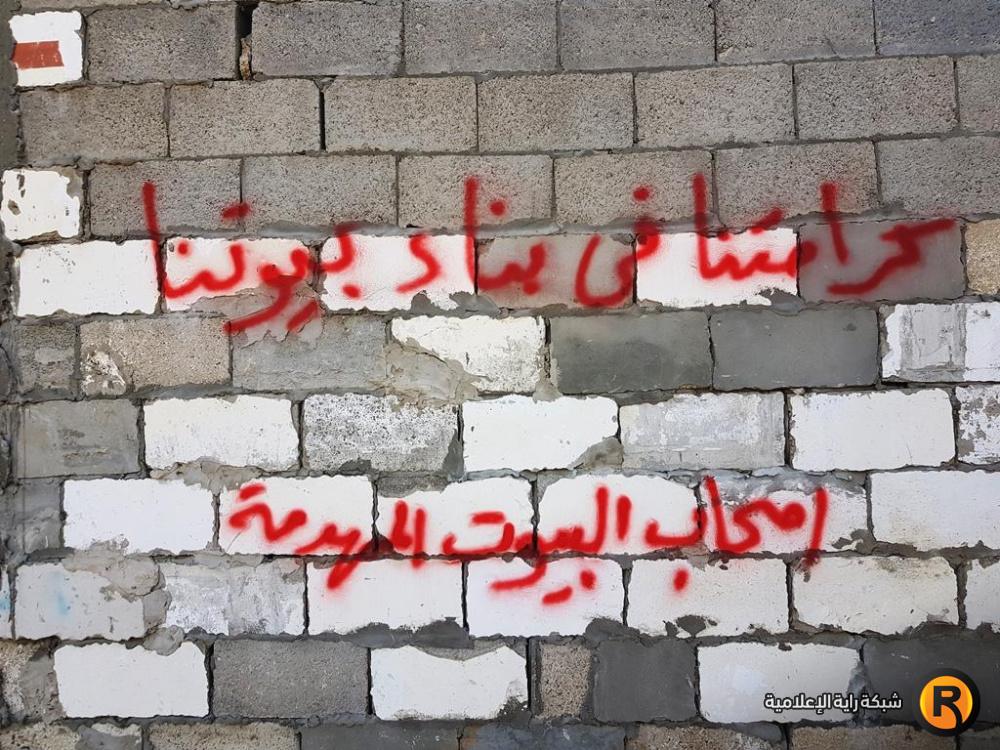 كرامتنا في بناء بيوتنا
اصحاب البيوت المهدمة
شبكة راية الإعلامية R